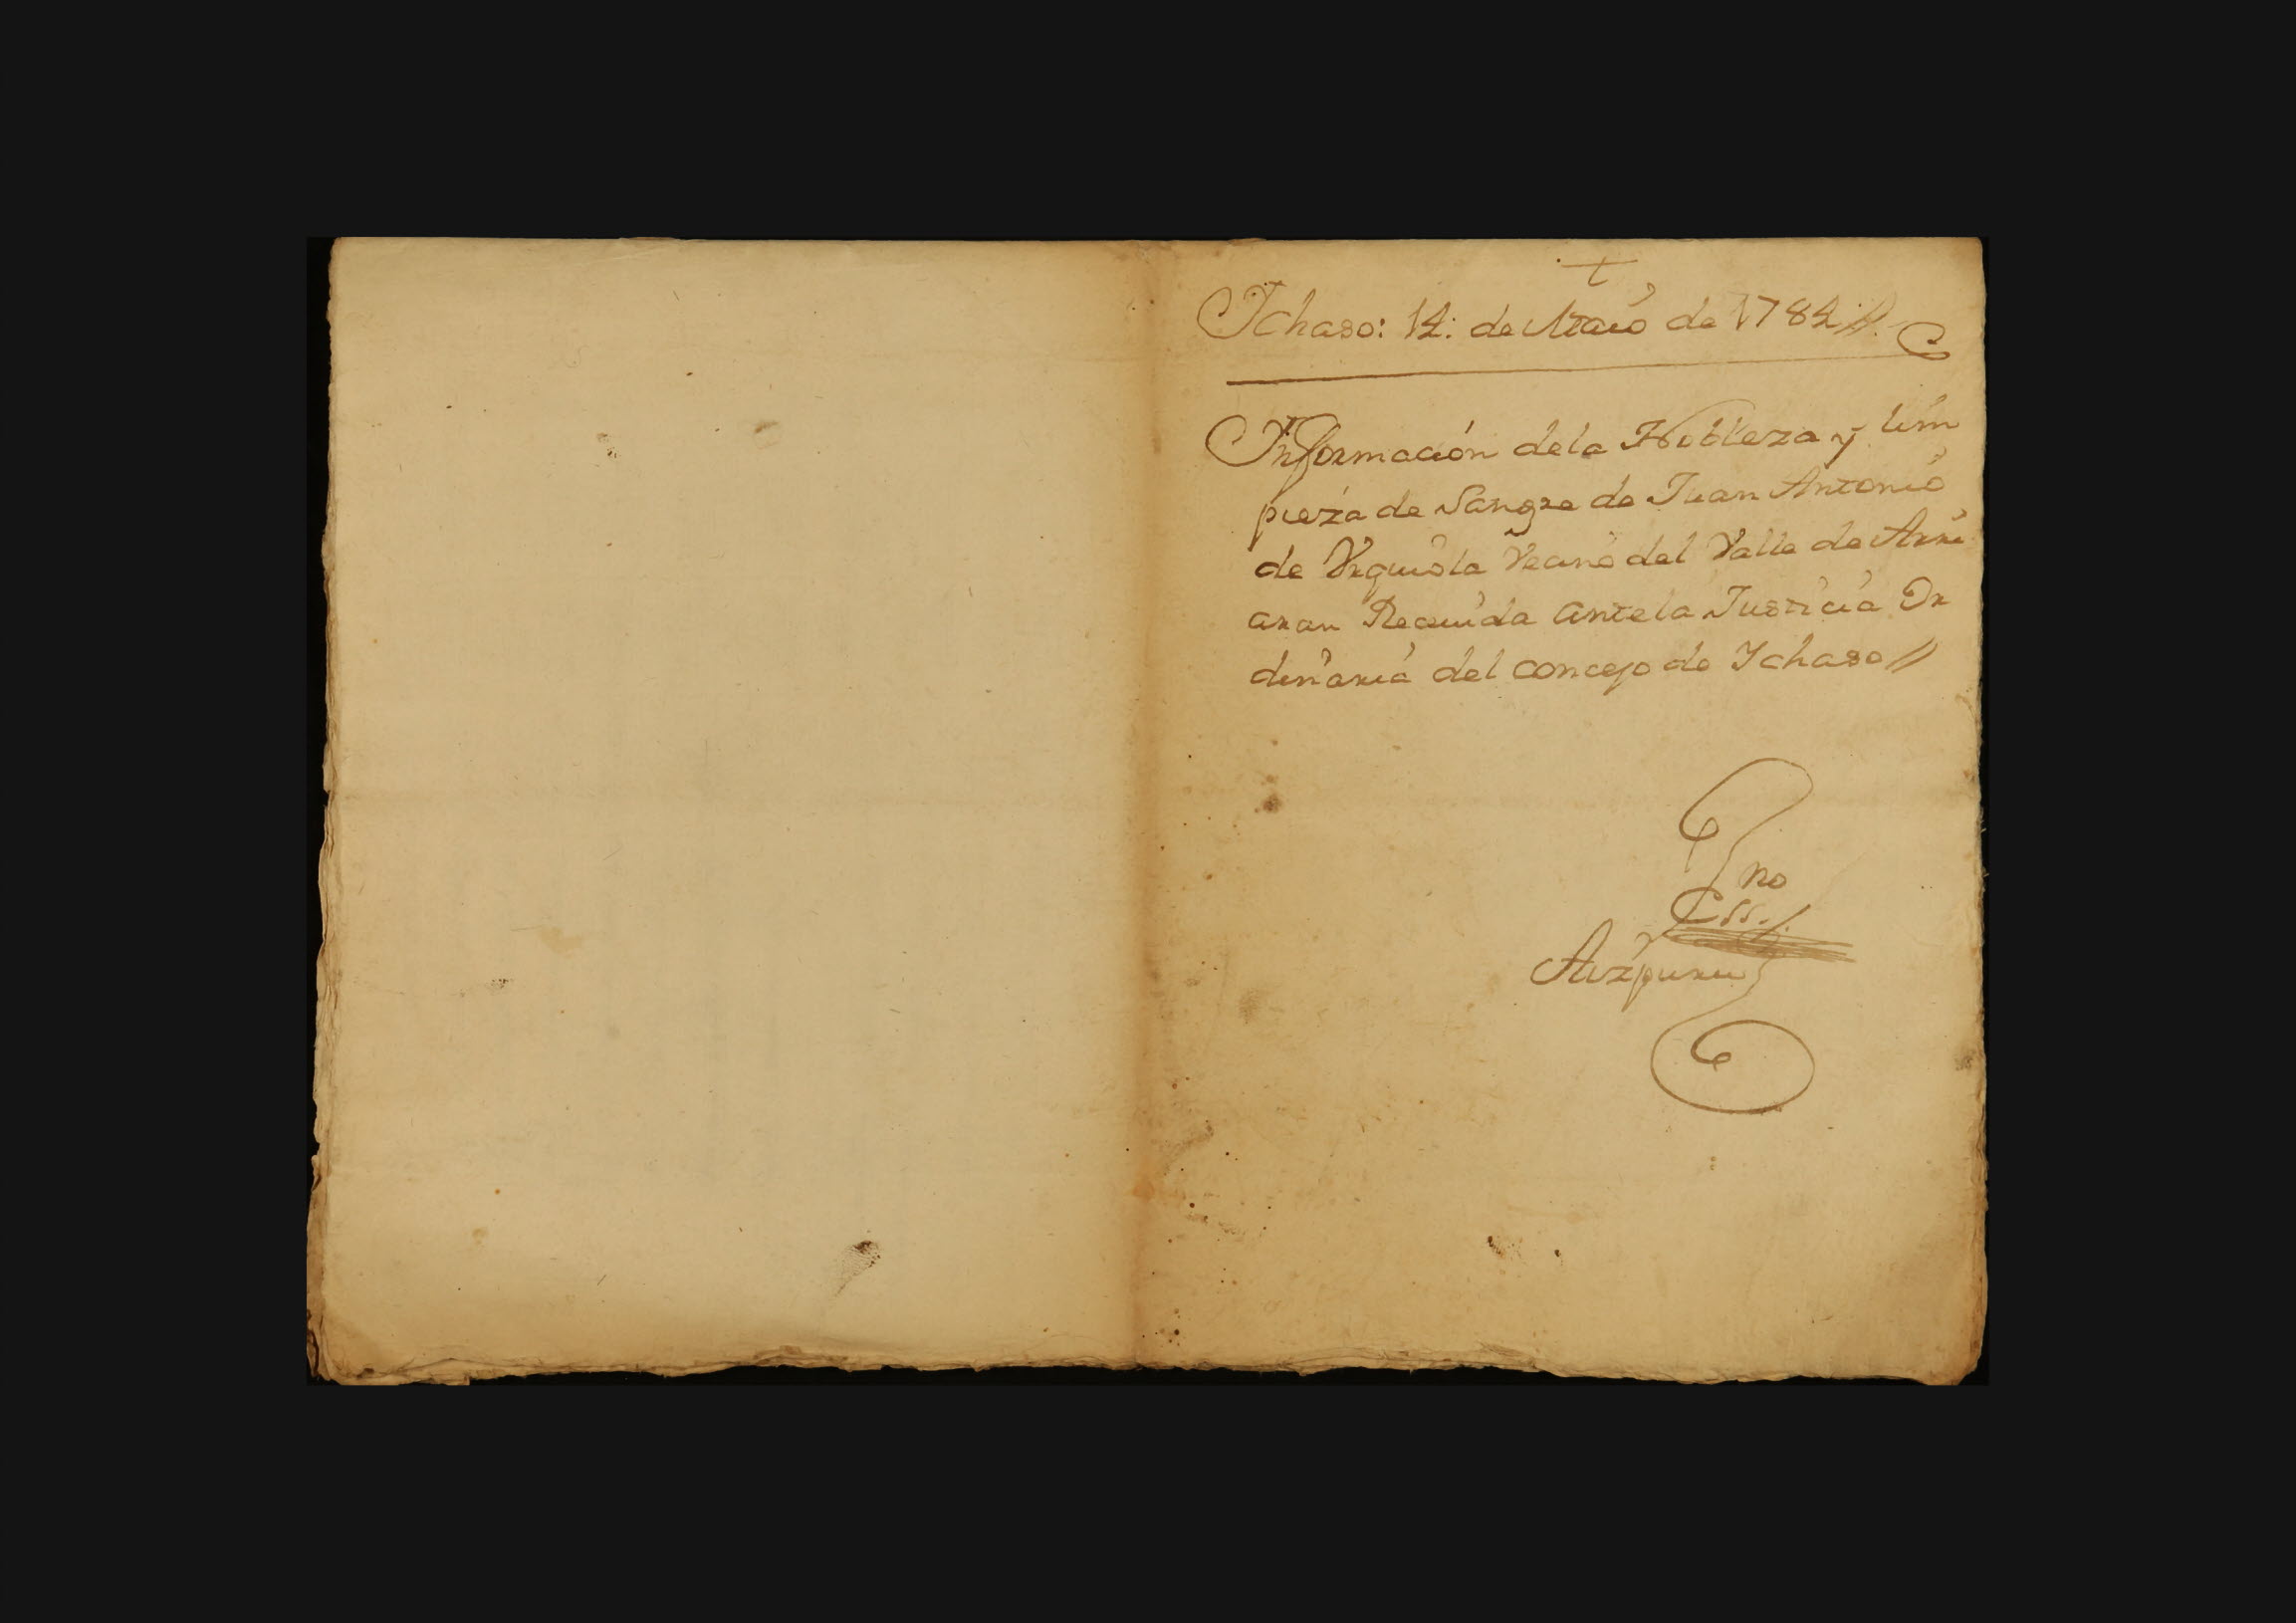 †
Ichaso: 14: de Maio de 1784 //.
Informacion dela Nobleza y lim
pieza de Sangre de Juan Antonio
de Vrquiola Vecino del Valle de Arri
aran Recivida ante la Justicia Or
dinaria del concejo de Ychaso //
no
Ess.
Aizpuru